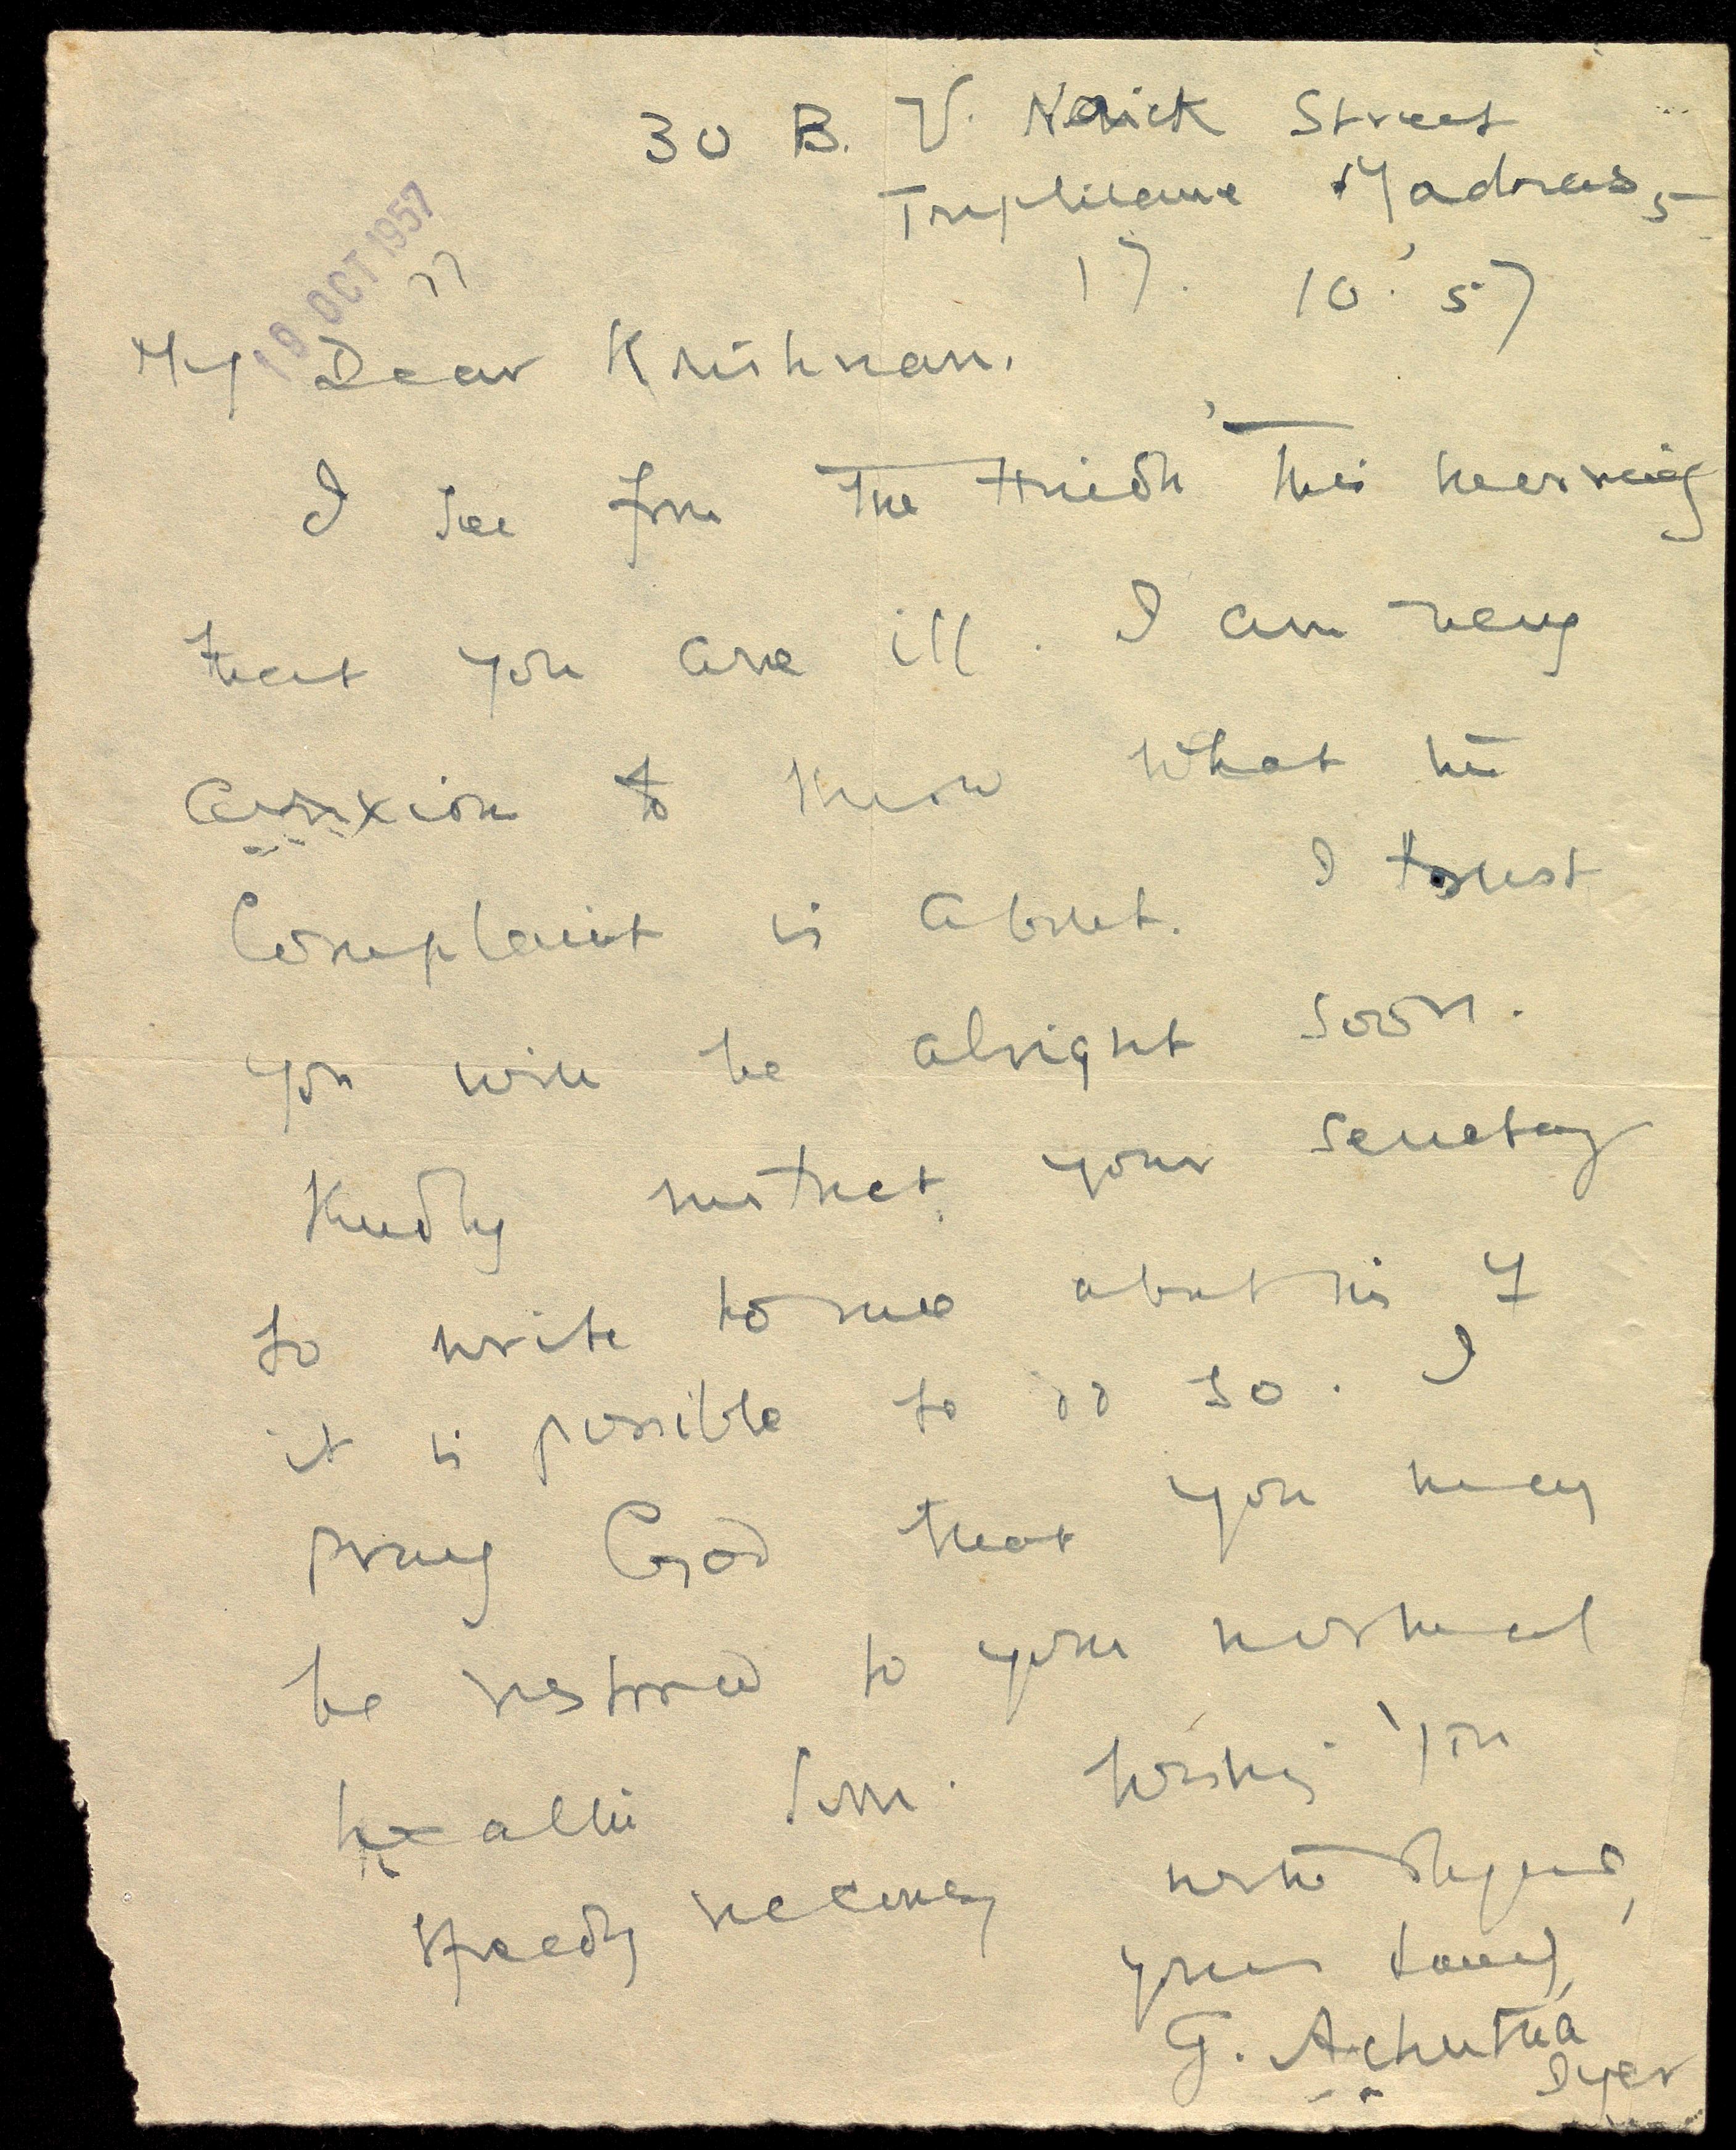 30 B. V. Naick Street
Triplicane Madras 5
19 OCT 1957
17. 10. 57
My Dear Krishnan.
I see from The Hindu this morning
that you are ill. I am very
anxious to know what the
Complaint is about. I trust
you will be alright soon.
Kindly instruct your secretary
to write to me about this if
it is possible to do so. I
pray God that you may
be restored to your normal
health soon. Wishing you
speedy recovery with
yours
G. Achutha
Iyer